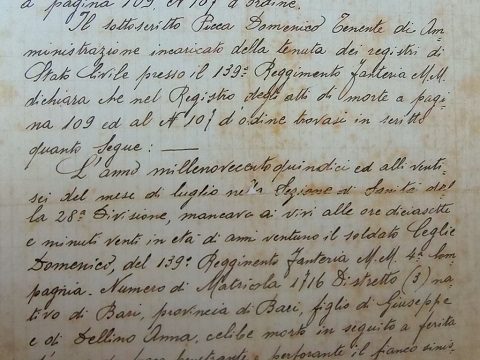 a pagina 109 N 107 d'ordine.
Il sottoscritto Picca Domenico Tenente di Am-
ministrazione incaricato della tenuta dei registri di
Stato Civile presso il 139º Reggimento Fanteria M.M.
dichiara che nel Registro degli atti di morte a pagi
na 109 ed al Nº 107 d'ordine trovasi in scritto
quanto segue: —
L'anno millenovecentoquindici ed alli venti-
sei del mese di luglio nella Sezione di Sanità del
la 28ª Divisione, mancava ai vivi alle ore diciasette
e minuti venti in età di anni ventuno il soldato Ceglie
Domenico, del 139º Reggimento Fanteria M.M. 4ª Com-
pagnia. Numero di Matricola 1716 Distretto (3) na
tivo di Bari, provincia di Bari, figlio di Giuseppe
e di Dellino Anna, celibe morto in seguito a ferita
penetrante e perforante il fianco sinis